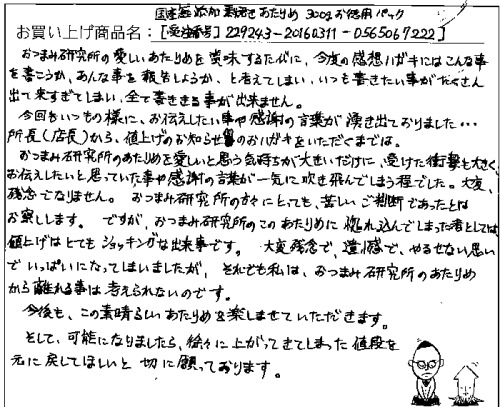 国産無添加素焼きあたりめ 300g お徳用パック
お買い上げ商品名：[受注番号] 229243-20160311-0565067222]
おつまみ研究所の愛しいあたりめを賞味するたびに、今度の感想ハガキにはこんな事
を書こうか、あんな事を報告しようか、と考えてしまい、いつも書きたい事がたくさん
出て来すぎてしまい、全て書ききる事が出来ません。
今回もいつもの様に、お伝えしたい事や感謝の言葉が湧き出ておりました…
所長(店長)から、値上げのお知らせのおハガキをいただくまでは。
おつまみ研究所のあたりめを愛しいと思う気持ちが大きいだけに、受けた衝撃も大きく、
お伝えしたいと思っていた事や感謝の言葉が一気に吹き飛んでしまう程でした。大変、
残念でなりません。おつまみ研究所の方々にとっても、苦しいご判断であったとは
お察しします。ですが、おつまみ研究所のこのあたりめに惚れ込んでしまった者としては、
値上げはとてもショッキングな出来事です。大変残念で、遺憾で、やるせない思い
でいっぱいになってしまいましたが、それでも私は、おつまみ研究所のあたりめ
から離れる事は考えられないのです。
今後も、この素晴らしいあたりめを楽しませていただきます。
そして、可能になりましたら、徐々に上がってきてしまった値段を
元に戻してほしいと切に願っております。